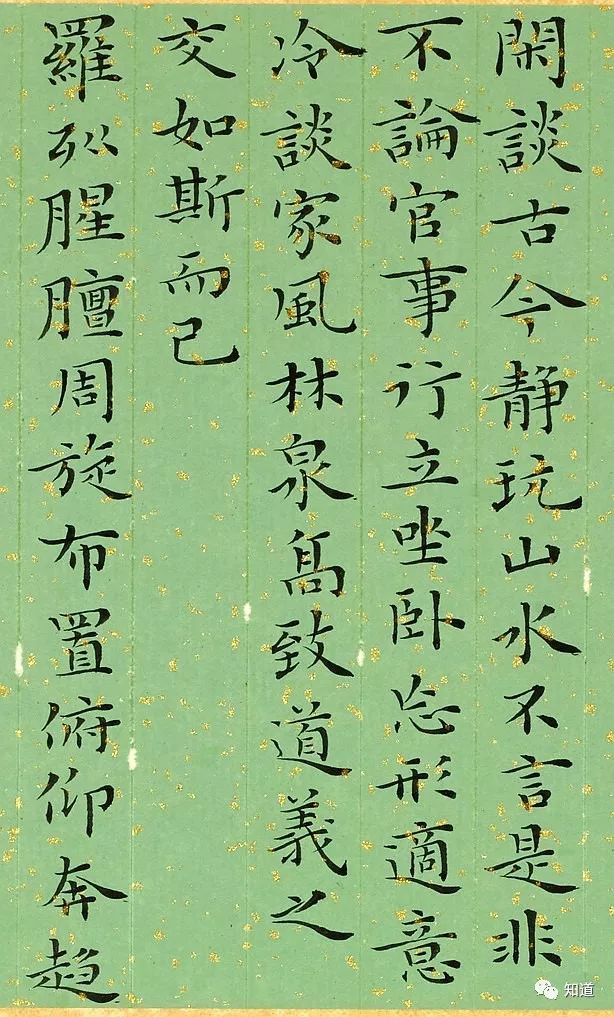 閑談古今静玩山水不言是非
不論官事行立坐卧忘形適意
冷談家風林泉髙致道義之
交如斯而已
羅列腥膻周旋布置俯仰奔趋
知道